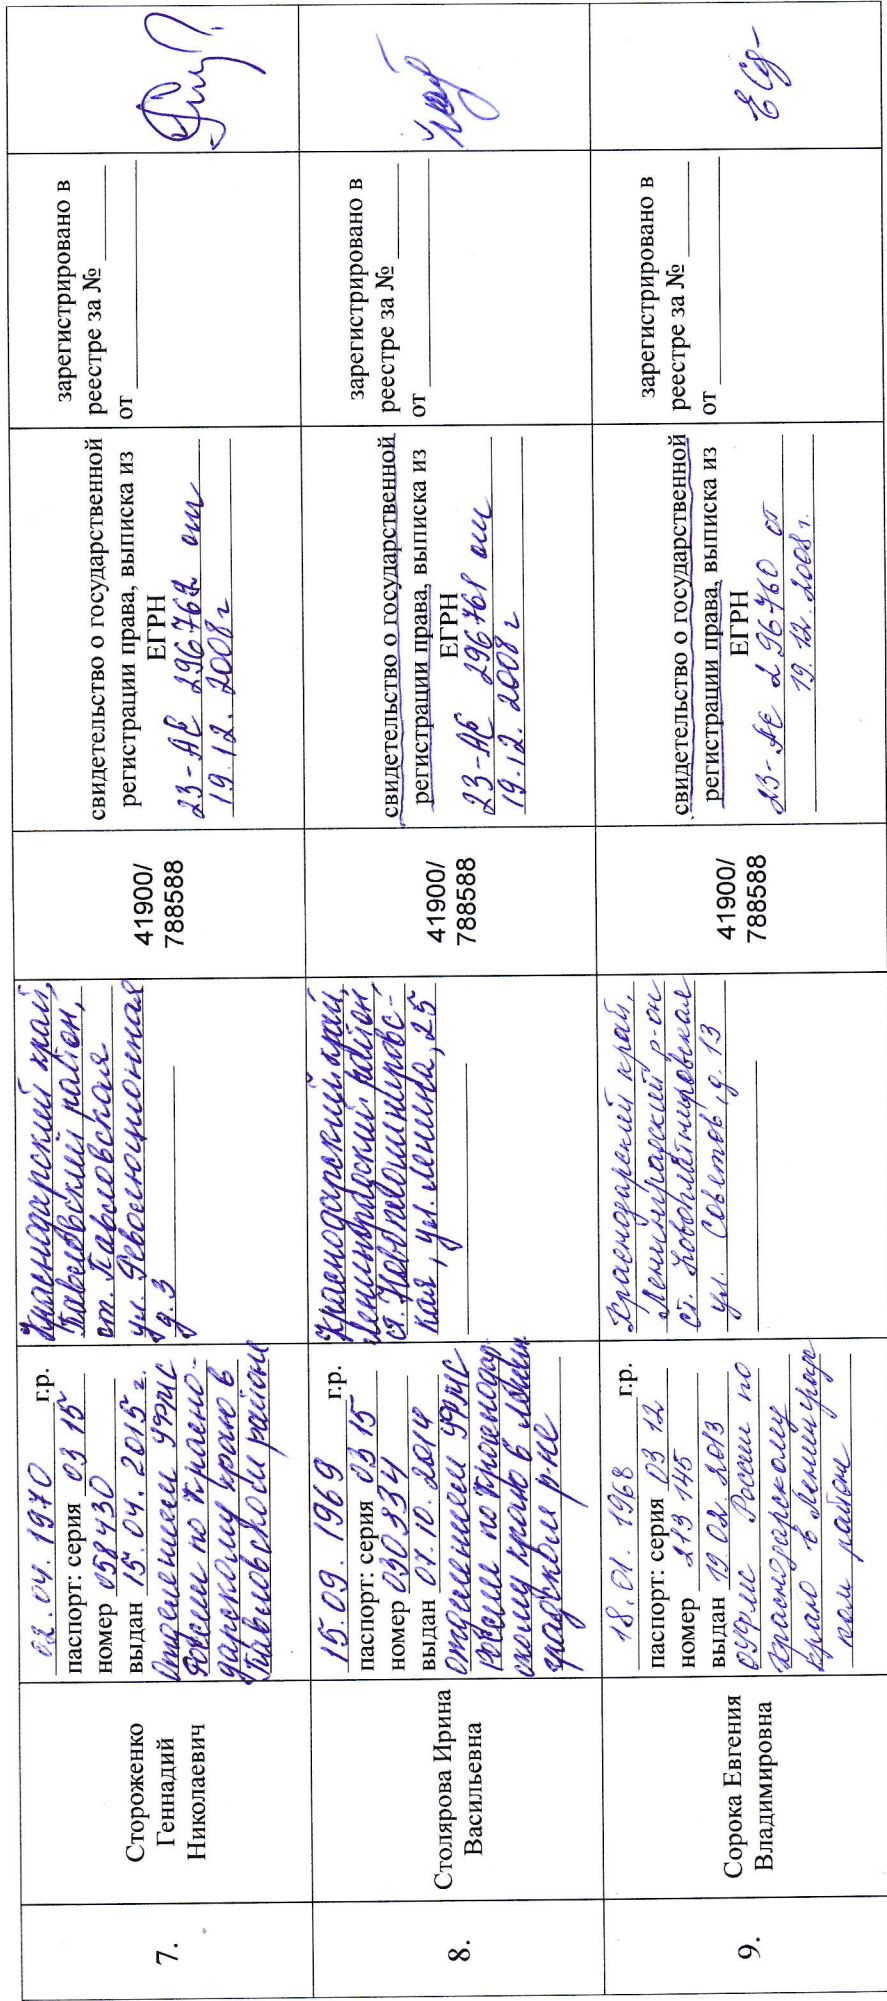 7.
Стороженко
Геннадий
Николаевич
02.04.1970 г.р.
паспорт: серия 03 15
номер 058430
выдан 15.04.2015 г.
Отделением УФМС
России по Красно-
дарскому краю в
Павловском районе
Краснодарский край,
Павловский район,
ст. Павловская
ул. Революционная
д. 3
41900/
788588
свидетельство о государственной
регистрации права, выписка из
ЕГРН
23-АЕ 296762 от
19.12.2008 г
зарегистрировано в
реестре за №
от
8.
Столярова Ирина
Васильевна
15.09.1969 г.р.
паспорт: серия 03 15
номер 030834
выдан 07.10.2014
отделением УФМС
России по Краснодар
скому краю в Ленин
градском р-не
Краснодарский край,
Ленинградский район
ст. Новоплатнировс-
кая, ул. Ленина, 25
41900/
788588
свидетельство о государственной
регистрации права, выписка из
ЕГРН
23-АЕ 296761 от
19.12.2008 г
зарегистрировано в
реестре за №
от
9.
Сорока Евгения
Владимировна
18.01.1968 г.р.
паспорт: серия 03 12
номер 213 145
выдан 19.02.2013
ОУФМС России по
Краснодарскому
краю в Ленинград
ком районе
Краснодарский край,
Ленинградский р-он
ст. Новоплатнировская
ул. Советов, д. 13
41900/
788588
свидетельство о государственной
регистрации права, выписка из
ЕГРН
23-АЕ 296760 от
19.12.2008 г.
зарегистрировано в
реестре за №
от